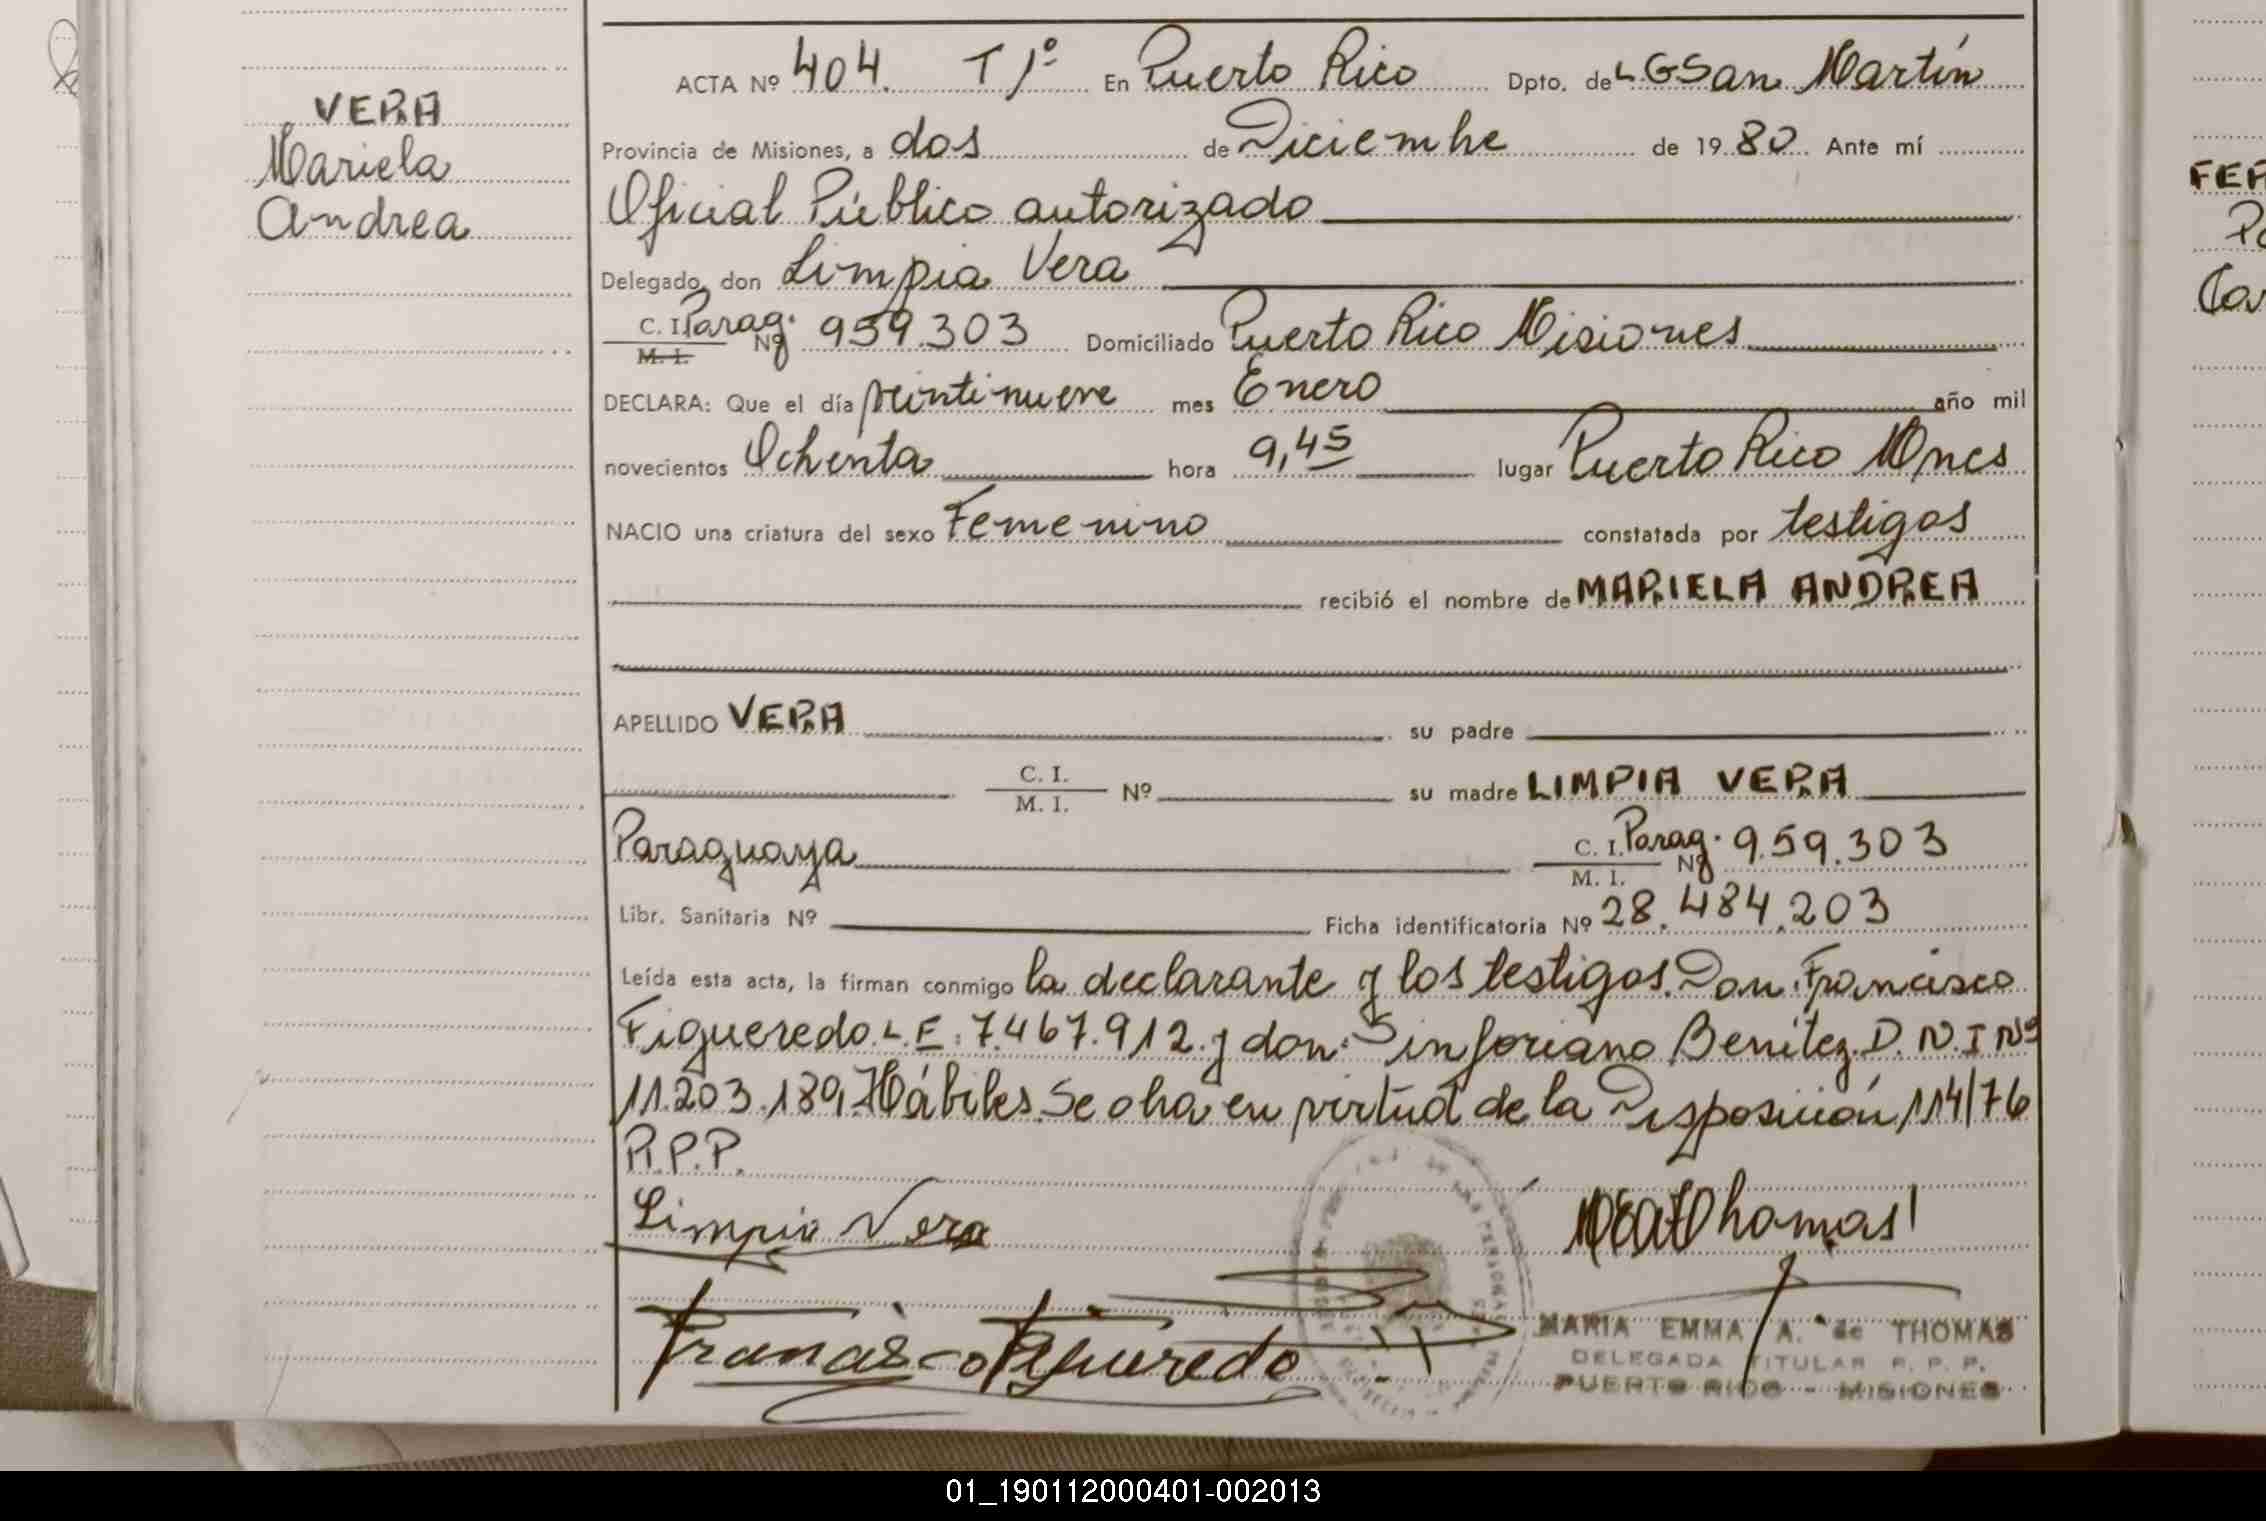 VERA
Mariela
Andrea
ACTA Nº 404. T 1º En Puerto Rico Dpto. de L.G San Martín
Provincia de Misiones, a dos de Diciembre de 1980. Ante mí
Oficial Público autorizado
Delegado, don Limpia Vera
C. I. Parag. Nº 959.303 Domiciliado Puerto Rico Misiones
M. I.
DECLARA: Que el día veintinueve mes Enero año mil
novecientos Ochenta hora 9,45 lugar Puerto Rico Mnes
NACIO una criatura del sexo Femenino constatada por testigos
recibió el nombre de MARIELA ANDREA
APELLIDO VERA su padre
C. I. Nº su madre LIMPIA VERA
M. I.
Paraguaya C. I. Parag. Nº 959.303
M. I.
Libr. Sanitaria Nº Ficha identificatoria Nº 28.484.203
Leída esta acta, la firman conmigo la declarante y los testigos. Don: Francisco
Figueredo. L.E: 7.467.912. y don: Sinforiano Benítez. D.N.I Nº
11.203.189, Hábiles. Se obra en virtud de la Disposición, 114/76
R.P.P.
Limpia Vera
Francisco Figueredo
MEAThomas
MARIA EMMA A. de THOMAS
DELEGADA TITULAR R. P. P.
PUERTO RICO - MISIONES
FER
01_190112000401-002013